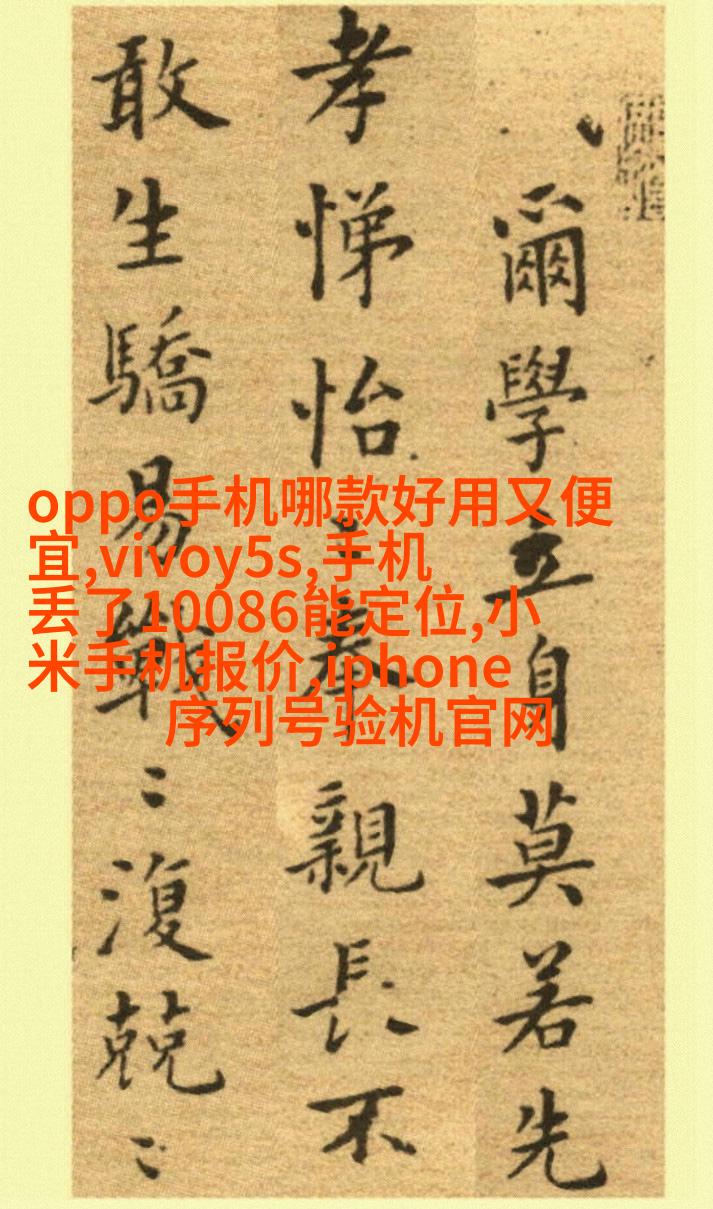 爾學立身莫若先
孝悌怡〻奉親長不
敢生驕易戰〻復兢〻
oppo手机哪款好用又便
宜,vivoy5s,手机
丢了10086能定位,小
米手机报价,iphone
序列号验机官网